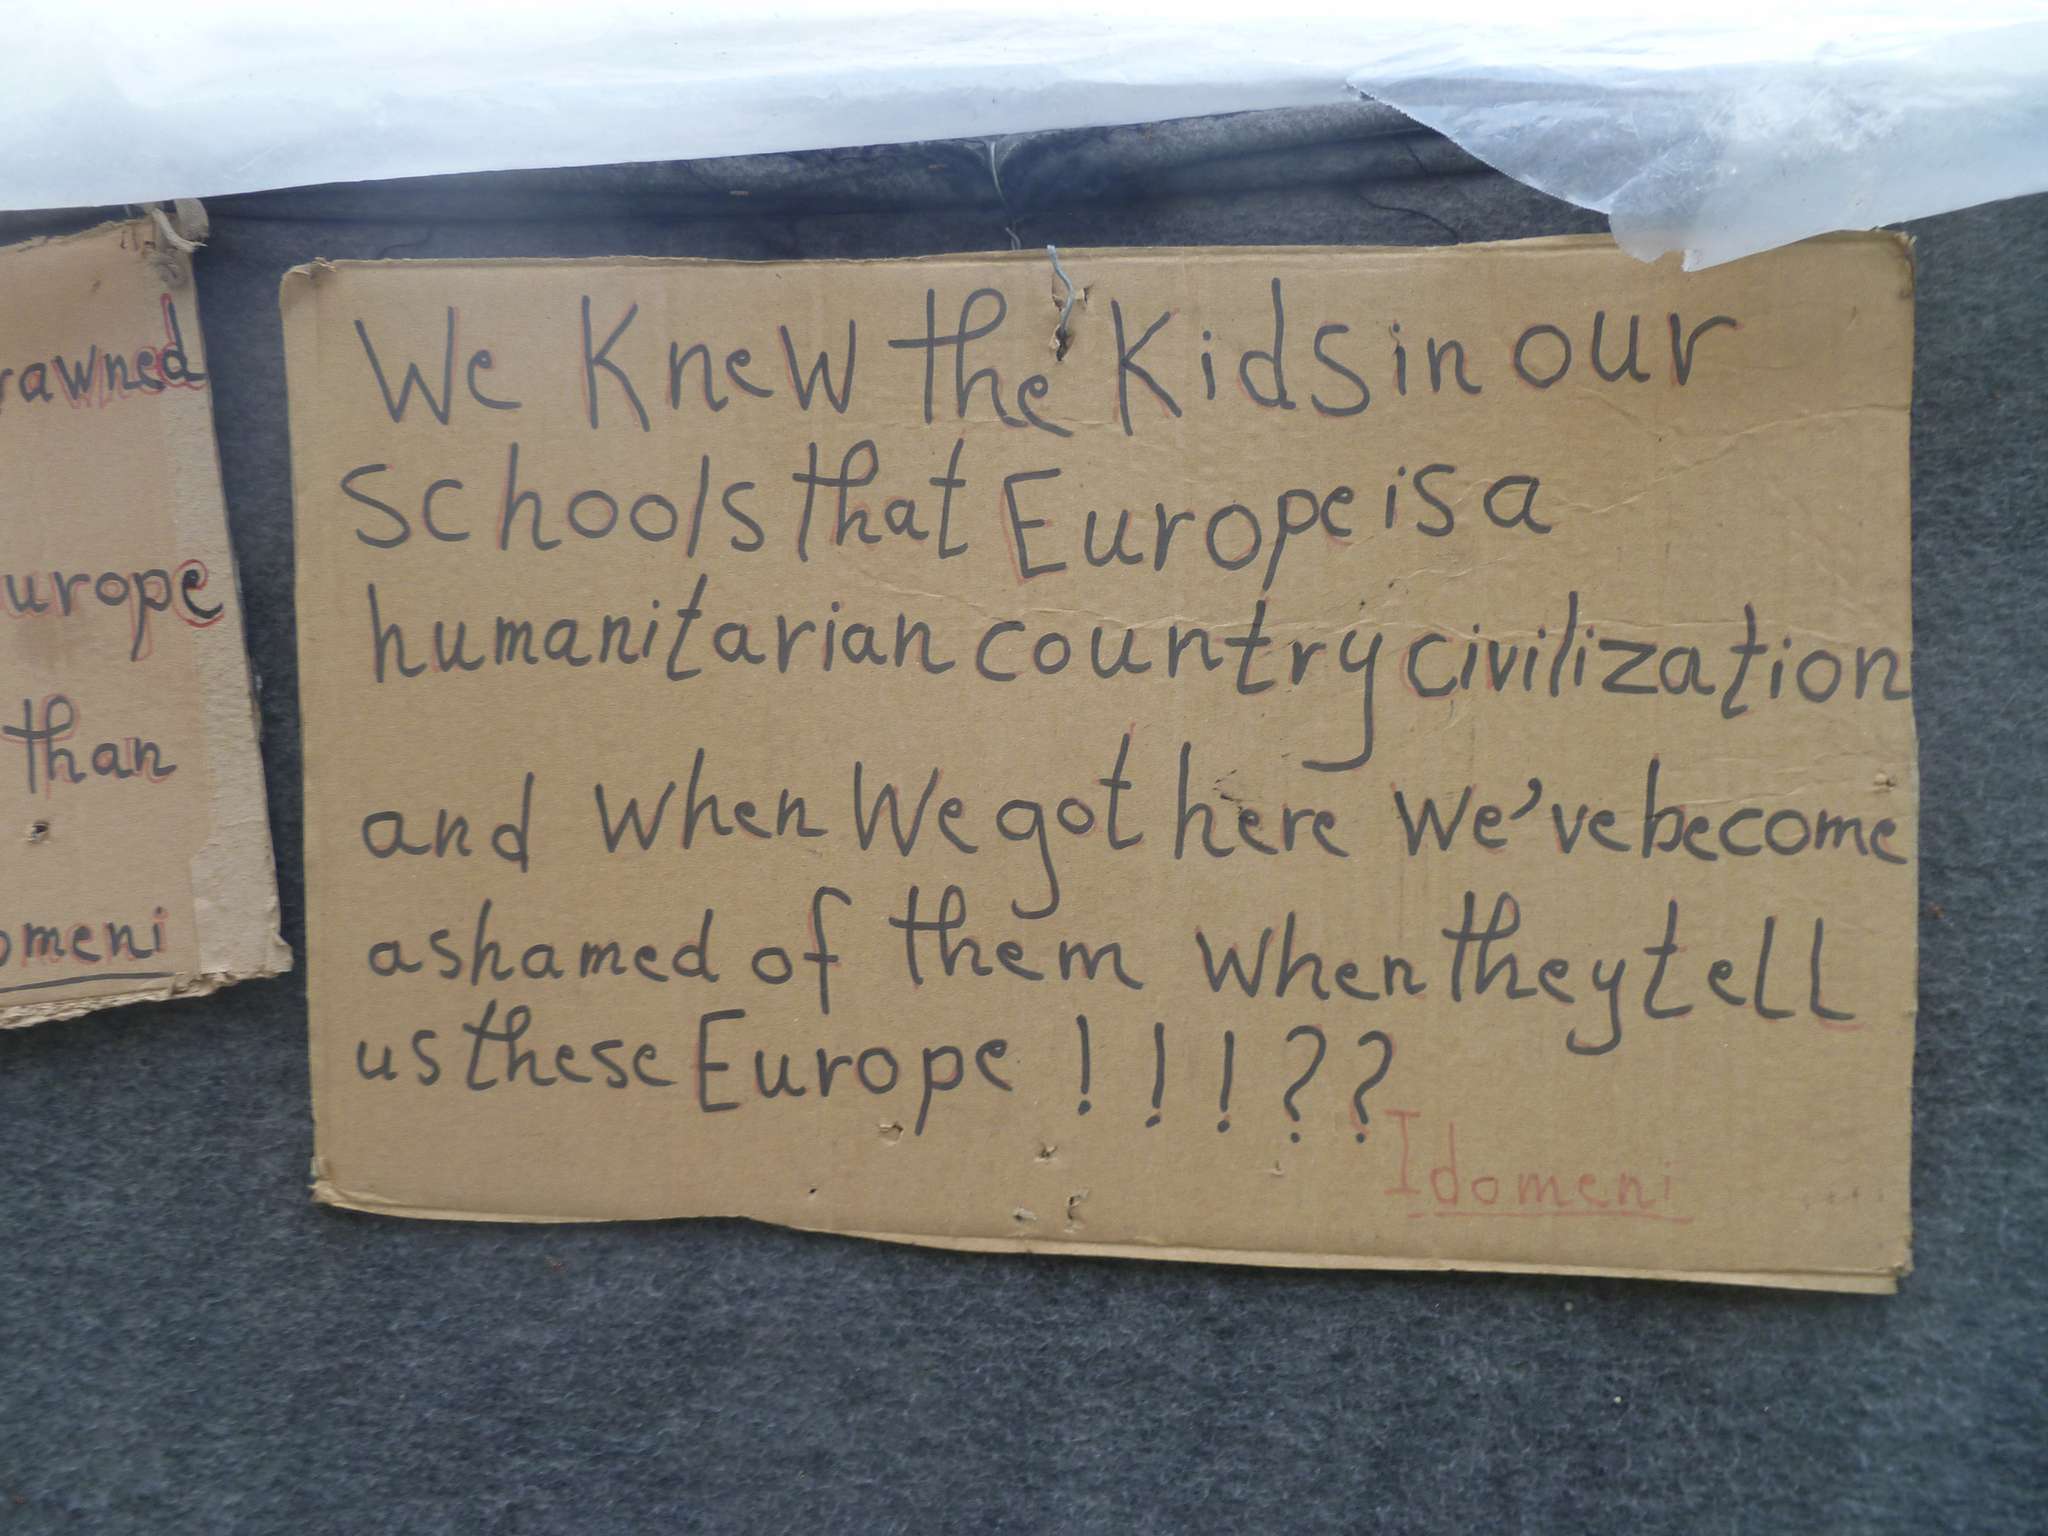 rawned
urope
than
omeni
We Knew the Kids in our
schools that Europe is a
humanitarian country civilization
and when We got here we've become
ashamed of them when they tell
us these Europe !!!??
Idomeni